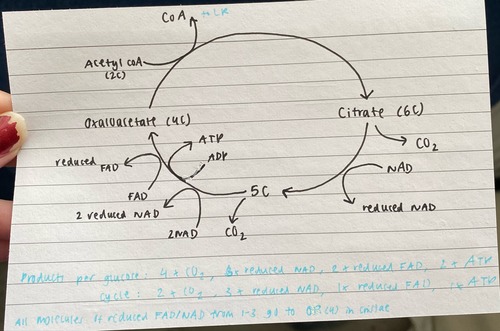 CoA to LR
Acetyl CoA
(2C)
Oxaloacetate (4C)
Citrate (6C)
CO₂
ATP
reduced FAD
ADP
NAD
FAD
5C
2 reduced NAD
reduced NAD
2NAD
CO₂
Products per glucose: 4 x CO₂, 6x reduced NAD, 2 x reduced FAD, 2 x ATP
cycle: 2 x CO₂, 3 x reduced NAD, 1x reduced FAD, ATP
All molecules of reduced FAD/NAD from 1-3 go to in